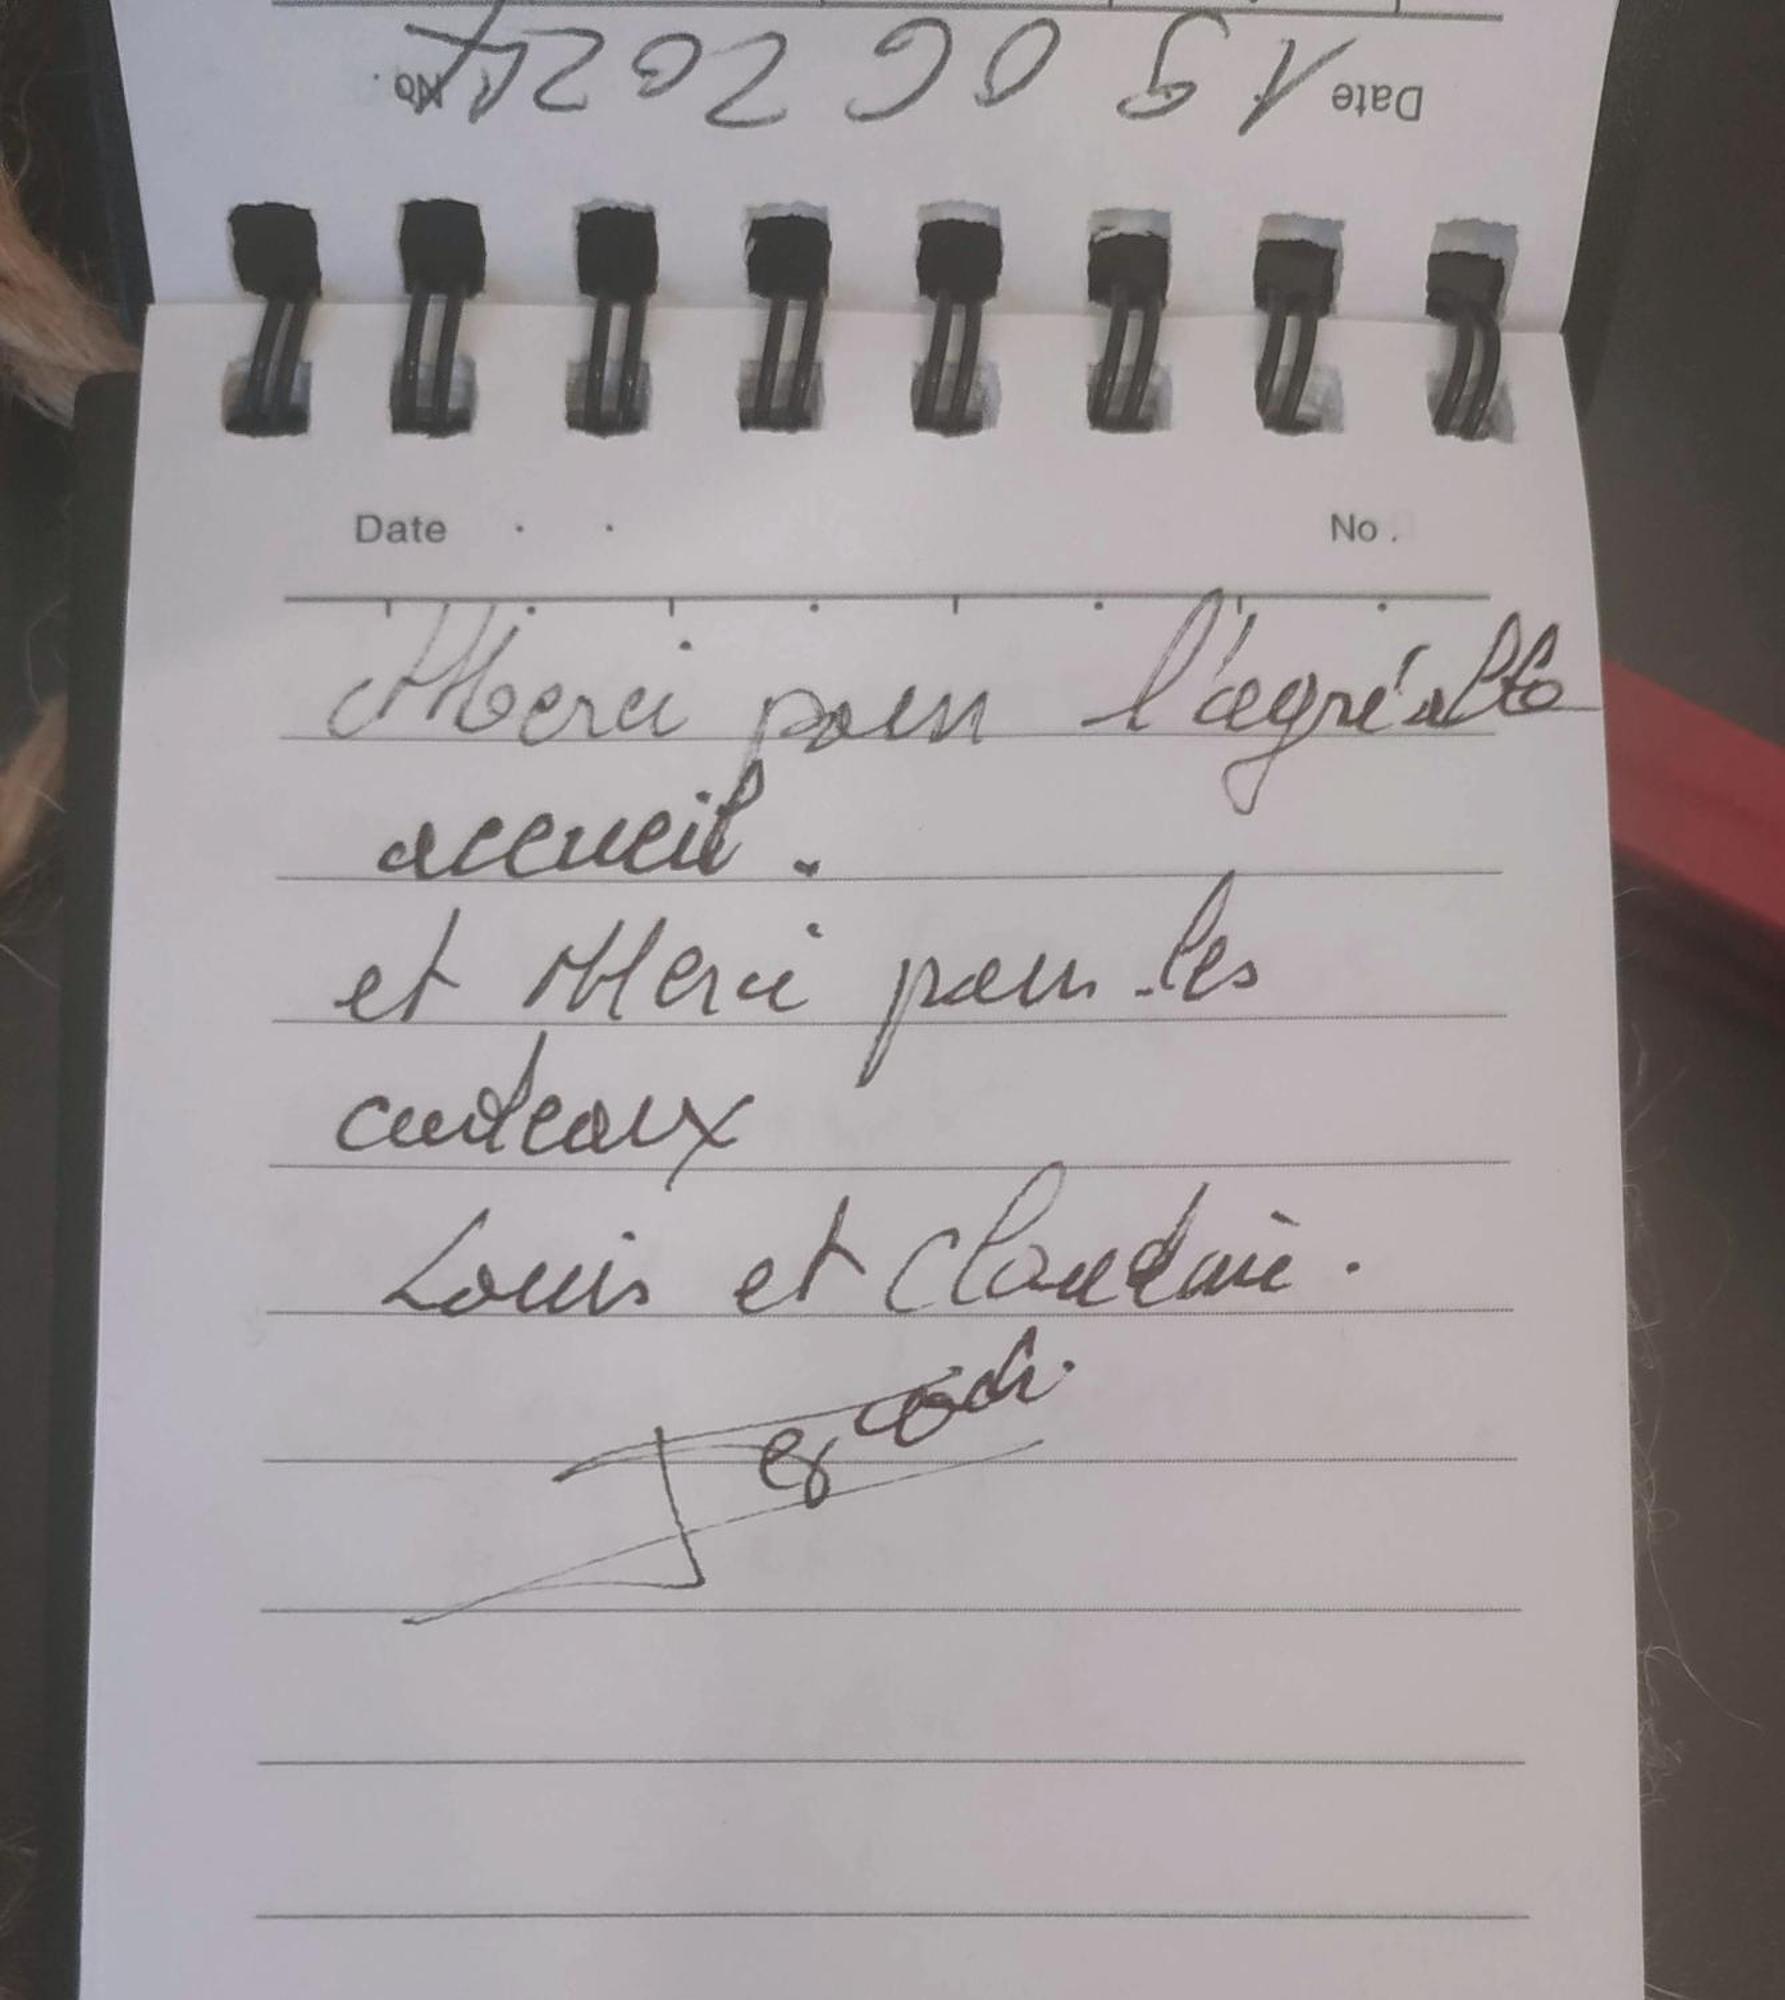 Date 19 06 2024 No.
Date . . No.
Merci pour l'agréable
accueil.
et Merci pour les
couteaux
Louis et Claudie.